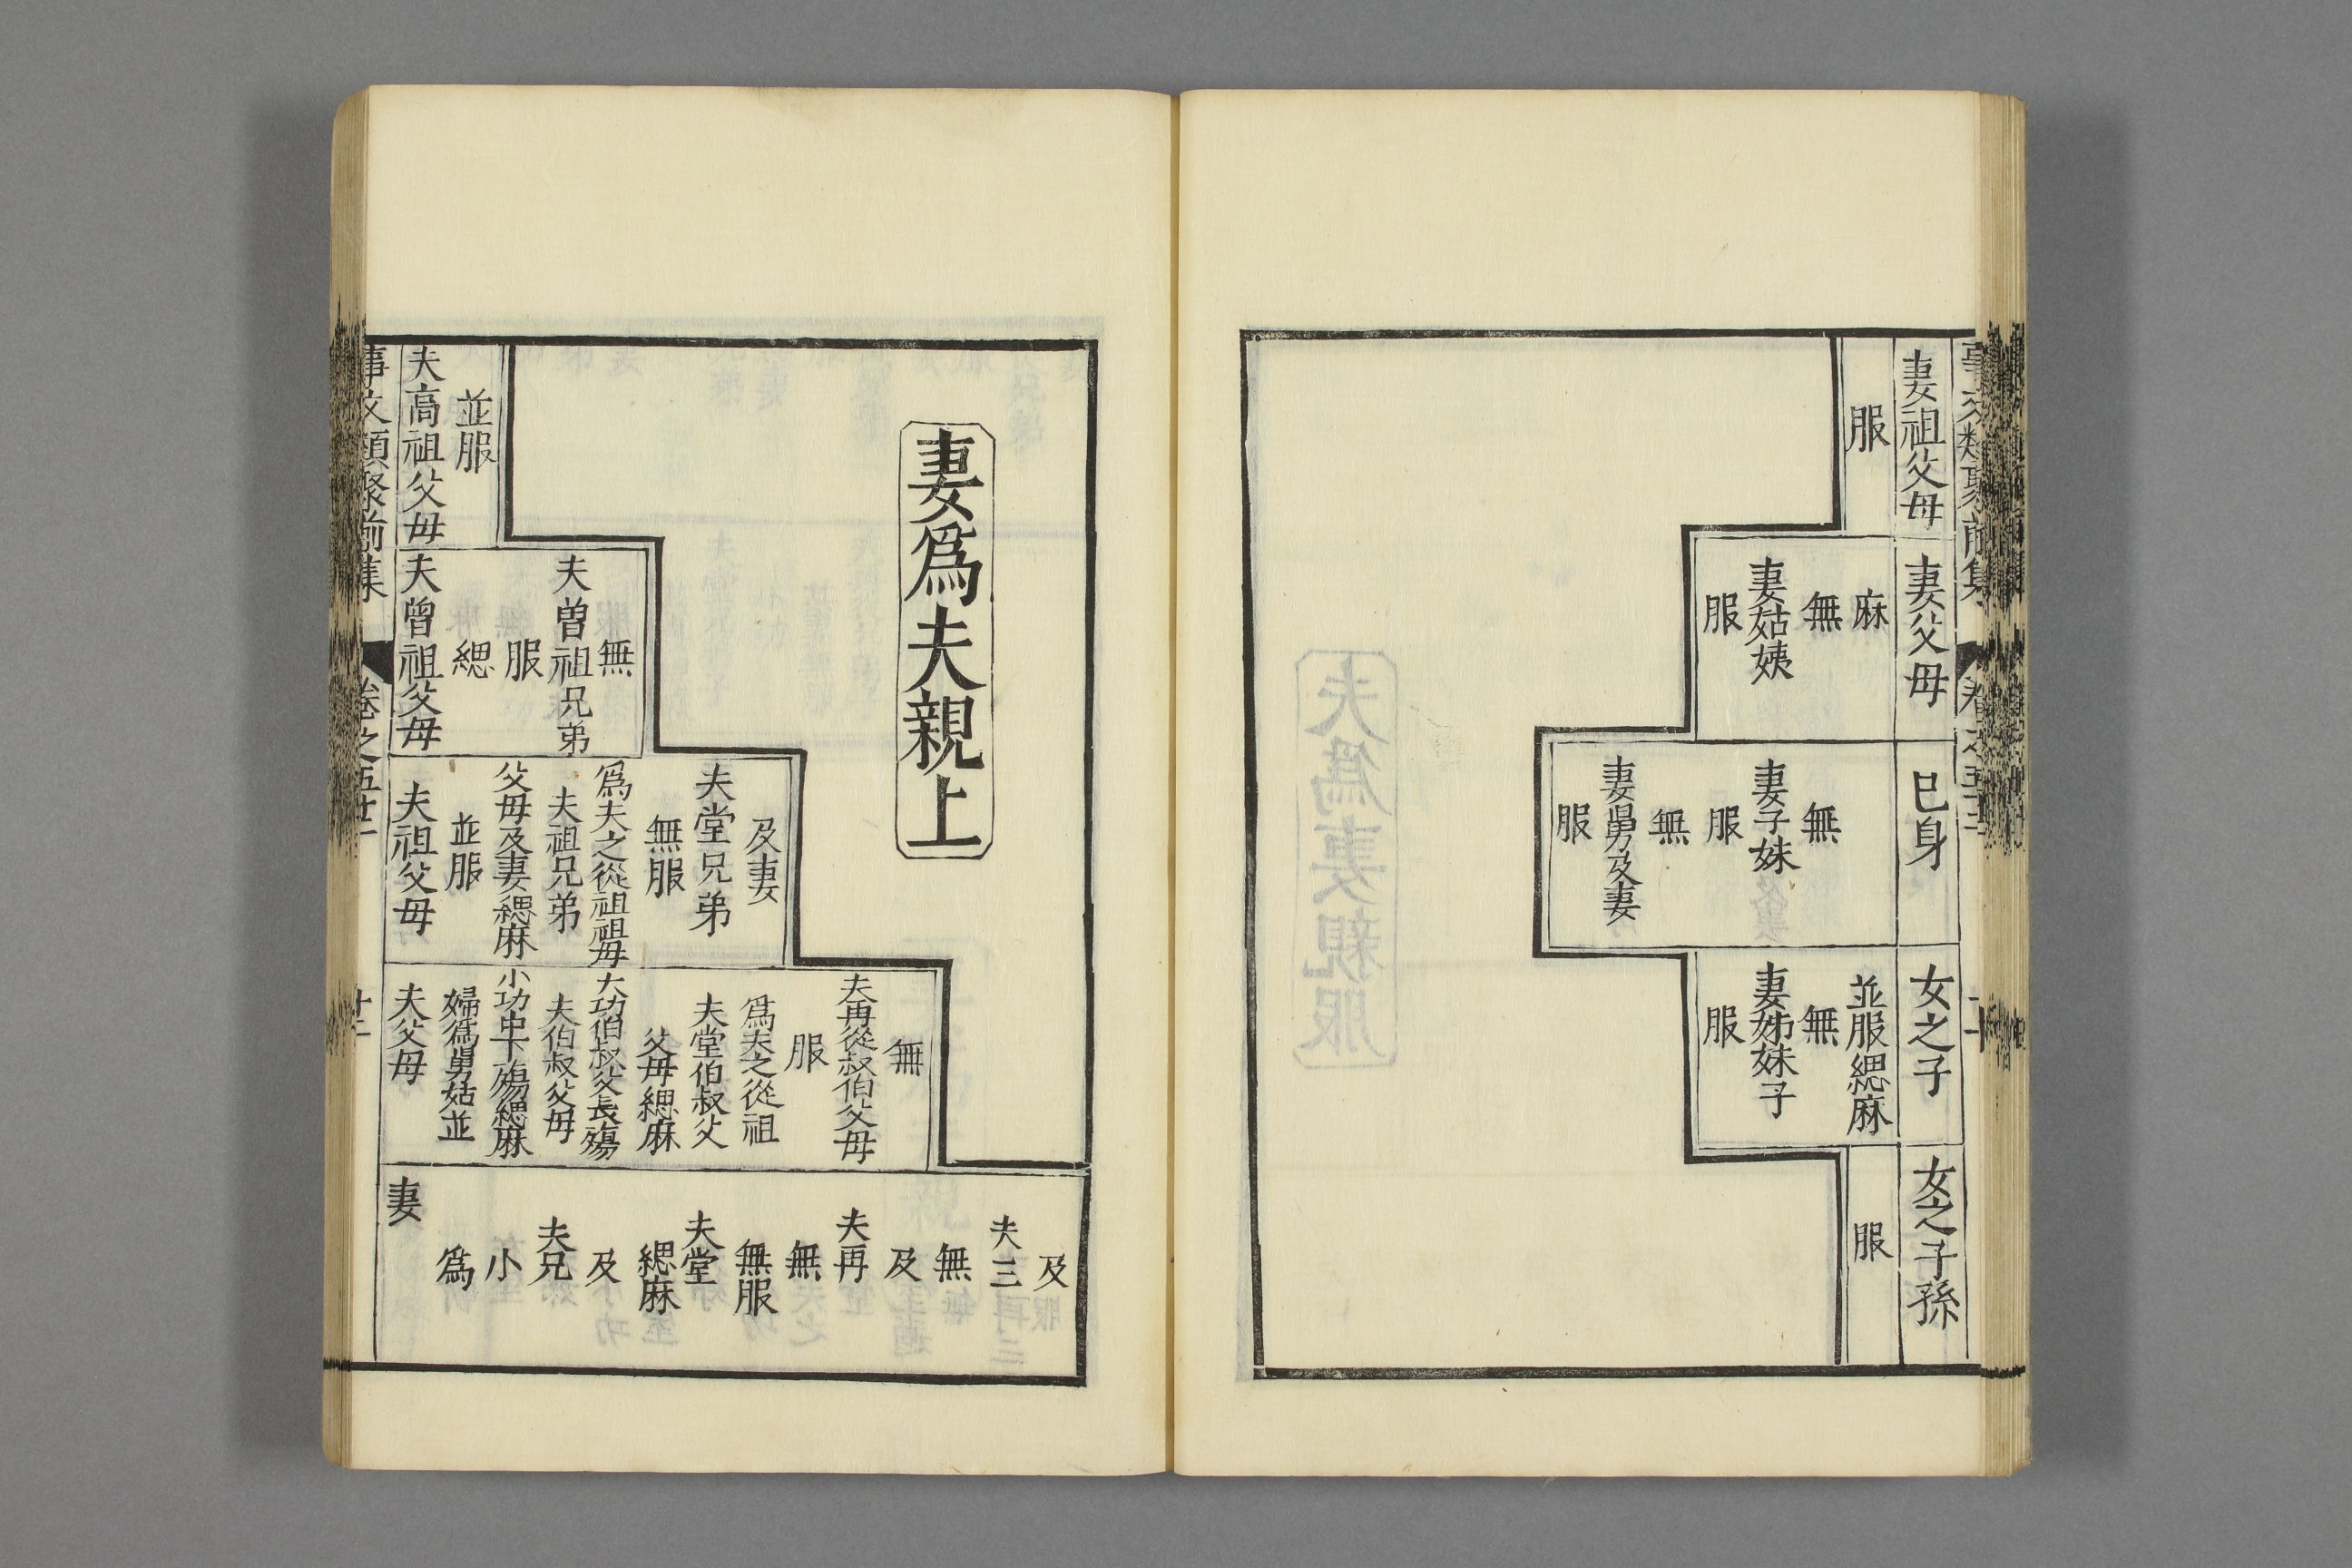 妻祖父母
服
妻父母
麻
無
妻姑姨
服
巳身
無
妻子妹
服
無
妻舅及妻
服
女之子
並服緦麻
無
妻姊妹子
服
女之子孫
服
妻爲夫親上
並服
夫高祖父母
無
夫曽祖兄弟
服
緦
夫曽祖父母
及妻
夫堂兄弟
無服
爲夫之從祖祖母
夫祖兄弟
父母及妻緦麻
並服
夫祖父母
無
夫再從叔伯父母
服
爲夫之從祖
夫堂伯叔父
父母緦麻
大功伯叔父長殤
夫伯叔父母
小功中下殤緦麻
婦爲舅姑並
夫父母
及
夫三
無
及
夫再
無
無服
夫堂
緦麻
及
夫兄
小
爲
妻
事文類聚前集
卷之五